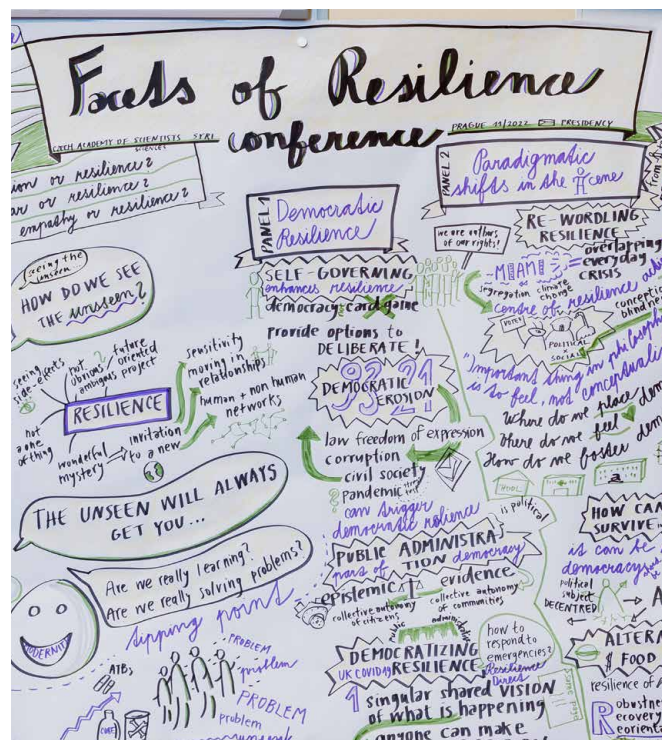 Facets of Resilience
conference
CZECH ACADEMY OF SCIENTISTS SYRI
SCIENCES
PRAGUE 11/2022
PRESIDENCY
or resilience?
or resilience?
empathy or resilience?
seeing the
unseen
HOW DO WE SEE
THE unseen?
seeing
side-effects
not
obvious
ambiguous
future
oriented
project
RESILIENCE
not
a one
of thing
wonderful
mystery
invitation
to a new
sensitivity
moving in
relationships
human + non human
networks
THE UNSEEN WILL ALWAYS
GET YOU...
Are we really learning?
Are we really solving problems?
MODERNITY
tipping point
ATB,
PROBLEM
problem
PROBLEM
problem
PANEL 1
Democratic
Resilience
SELF-GOVERNING
enhances resilience
democracy: card game
provide options to
DELIBERATE!
93 21
DEMOCRATIC
EROSION
law freedom of expression
corruption
civil society
pandemic
can trigger
democratic relience
PUBLIC ADMINISTRA
TION
part of democracy
epistemic
evidence
collective autonomy
of citizens
collective autonomy
of communities
DEMOCRATIZING
UK COVID19 RESILIENCE
how to
respond to
emergencies?
Resilience
Direct
1 singular shared VISION
of what is happening
anyone can make
PANEL 2
Paradigmatic
shifts in the
cene
we are authors
of our rights!
RE-WORLDING
RESILIENCE
overlapping
everyday
CRISIS
MIAMI
segregation
climate
change
centre of resilience
POLITICAL
x
SOCIAL
"Important thing in
is to feel, not
Where do we place
Where do we feel
How do we foster
is political
HOW CAN
SURVIVE
is can be
democracy
political
subject
DECENTRED
ALTER
& FOOD
resilience of
Robustne
recovery
reorient